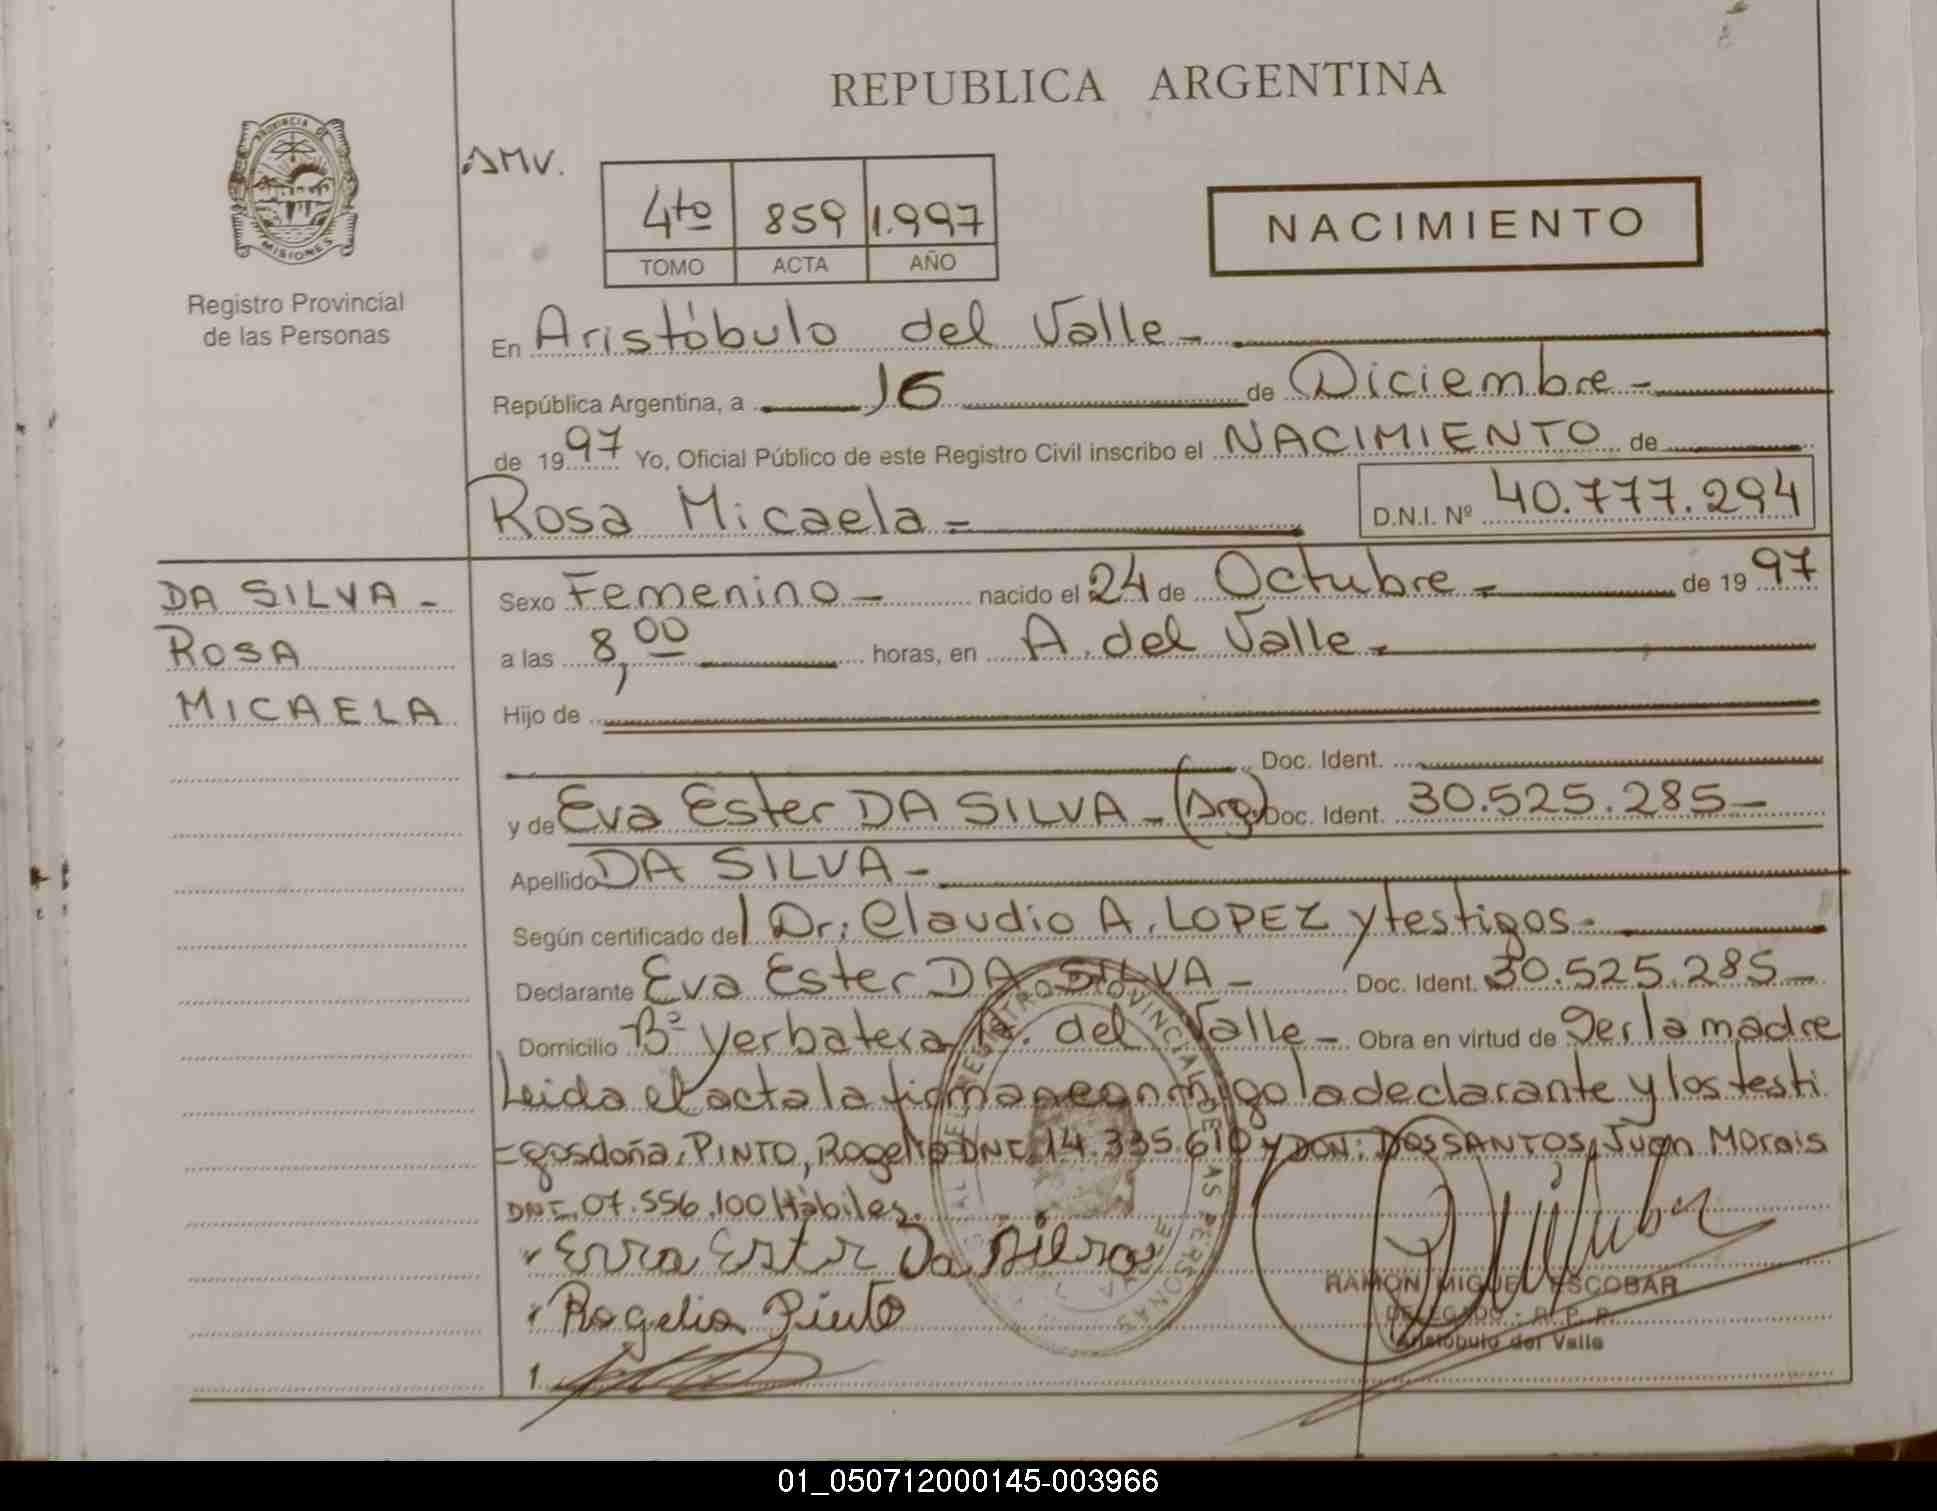 REPUBLICA ARGENTINA
PROVINCIA DE MISIONES
Registro Provincial
de las Personas
AMV.
4to 859 1.997
TOMO ACTA AÑO
NACIMIENTO
En Aristóbulo del Valle
República Argentina, a 16 de Diciembre
de 1997 Yo, Oficial Público de este Registro Civil inscribo el NACIMIENTO de
Rosa Micaela D.N.I. Nº 40.777.294
DA SILVA
ROSA
MICAELA
Sexo Femenino nacido el 24 de Octubre de 1997
a las 8,00 horas, en A. del Valle
Hijo de
Doc. Ident.
y de Eva Ester DA SILVA (Arg) Doc. Ident. 30.525.285
Apellido DA SILVA
Según certificado del Dr: Claudio A. LOPEZ y testigos
Declarante Eva Ester DA SILVA Doc. Ident. 30.525.285
Domicilio Bº Yerbatera A. del Valle Obra en virtud de ser la madre
Leida el acta la firman conmigo la declarante y los testi
-gos doña: PINTO, Rogelia DNI. 14.335.610 y DON: DOS SANTOS, Juan Morais
DNI. 07.556.100 Hábiles.
Eva Ester Da Silva
Rogelia Pinto
RAMON MIGUEL ESCOBAR
DELEGADO - R. P. P.
Aristóbulo del Valle
REGISTRO PROVINCIAL DE LAS PERSONAS
01_050712000145-003966